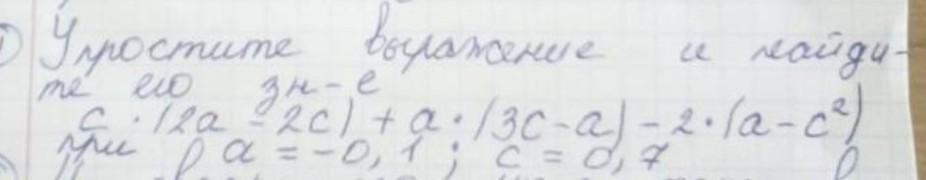 1) Упростите выражение и найди-
те его зн-е
c · (2a - 2c) + a · (3c - a) - 2 · (a - c²)
при a = -0,1; c = 0,7